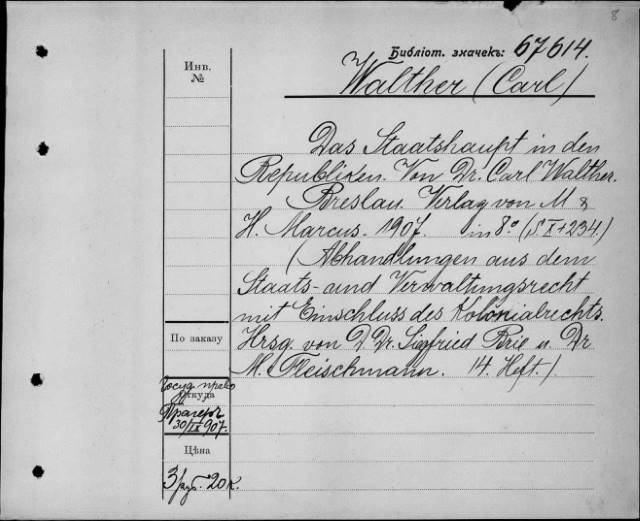 8
Библіот. значекъ: 67614.
Инв.
№
Walther (Carl)
Das Staatshaupt in den
Republiken. Von Dr. Carl Walther.
Breslau. Verlag von M &
H. Marcus. 1907. in 8° (S X+234.)
(Abhandlungen aus dem
Staats- und Verwaltungsrecht
mit Einschluss des Kolonialrechts.
Hrsg. von D. Dr. Siegfried Brie u. Dr
M. Fleischmann. 14. Heft.)
По заказу
Госуд право
Откуда
Прагеръ
30/IX 907.
Цѣна
3 руб. 20 к.